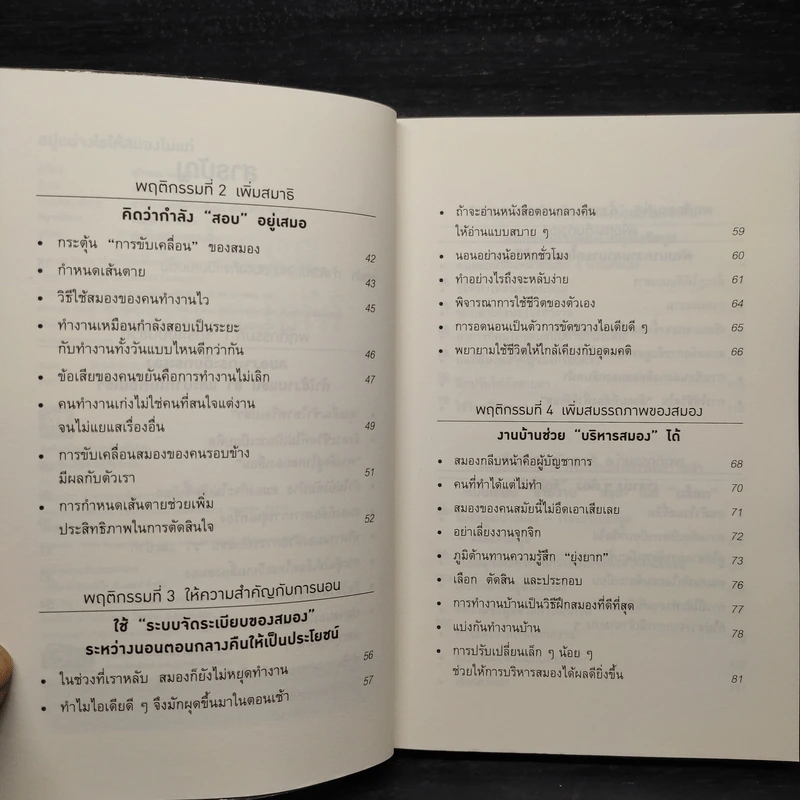 พฤติกรรมที่ 2 เพิ่มสมาธิ
คิดว่ากำลัง "สอบ" อยู่เสมอ
• กระตุ้น "การขับเคลื่อน" ของสมอง 42
• กำหนดเส้นตาย 43
• วิธีใช้สมองของคนทำงานไว 45
• ทำงานเหมือนกำลังสอบเป็นระยะ
กับทำงานทั้งวันแบบไหนดีกว่ากัน 46
• ข้อเสียของคนขยันคือการทำงานไม่เลิก 47
• คนทำงานเก่งไม่ใช่คนที่สนใจแต่งาน
จนไม่แยแสเรื่องอื่น 49
• การขับเคลื่อนสมองของคนรอบข้าง
มีผลกับตัวเรา 51
• การกำหนดเส้นตายช่วยเพิ่ม
ประสิทธิภาพในการตัดสินใจ 52
พฤติกรรมที่ 3 ให้ความสำคัญกับการนอน
ใช้ "ระบบจัดระเบียบของสมอง"
ระหว่างนอนตอนกลางคืนให้เป็นประโยชน์
• ในช่วงที่เราหลับ สมองก็ยังไม่หยุดทำงาน 56
• ทำไมไอเดียดี ๆ จึงมักผุดขึ้นมาในตอนเช้า 57
• ถ้าจะอ่านหนังสือตอนกลางคืน
ให้อ่านแบบสบาย ๆ 59
• นอนอย่างน้อยหกชั่วโมง 60
• ทำอย่างไรถึงจะหลับง่าย 61
• พิจารณาการใช้ชีวิตของตัวเอง 64
• การอดนอนเป็นตัวการขัดขวางไอเดียดี ๆ 65
• พยายามใช้ชีวิตให้ใกล้เคียงกับอุดมคติ 66
พฤติกรรมที่ 4 เพิ่มสมรรถภาพของสมอง
งานบ้านช่วย "บริหารสมอง" ได้
• สมองกลีบหน้าคือผู้บัญชาการ 68
• คนที่ทำได้แต่ไม่ทำ 70
• สมองของคนสมัยนี้ไม่อึดเอาเสียเลย 71
• อย่าเลี่ยงงานจุกจิก 72
• ภูมิต้านทานความรู้สึก "ยุ่งยาก" 73
• เลือก ตัดสิน และประกอบ 76
• การทำงานบ้านเป็นวิธีฝึกสมองที่ดีที่สุด 77
• แบ่งกันทำงานบ้าน 78
• การปรับเปลี่ยนเล็ก ๆ น้อย ๆ
ช่วยให้การบริหารสมองได้ผลดียิ่งขึ้น 81